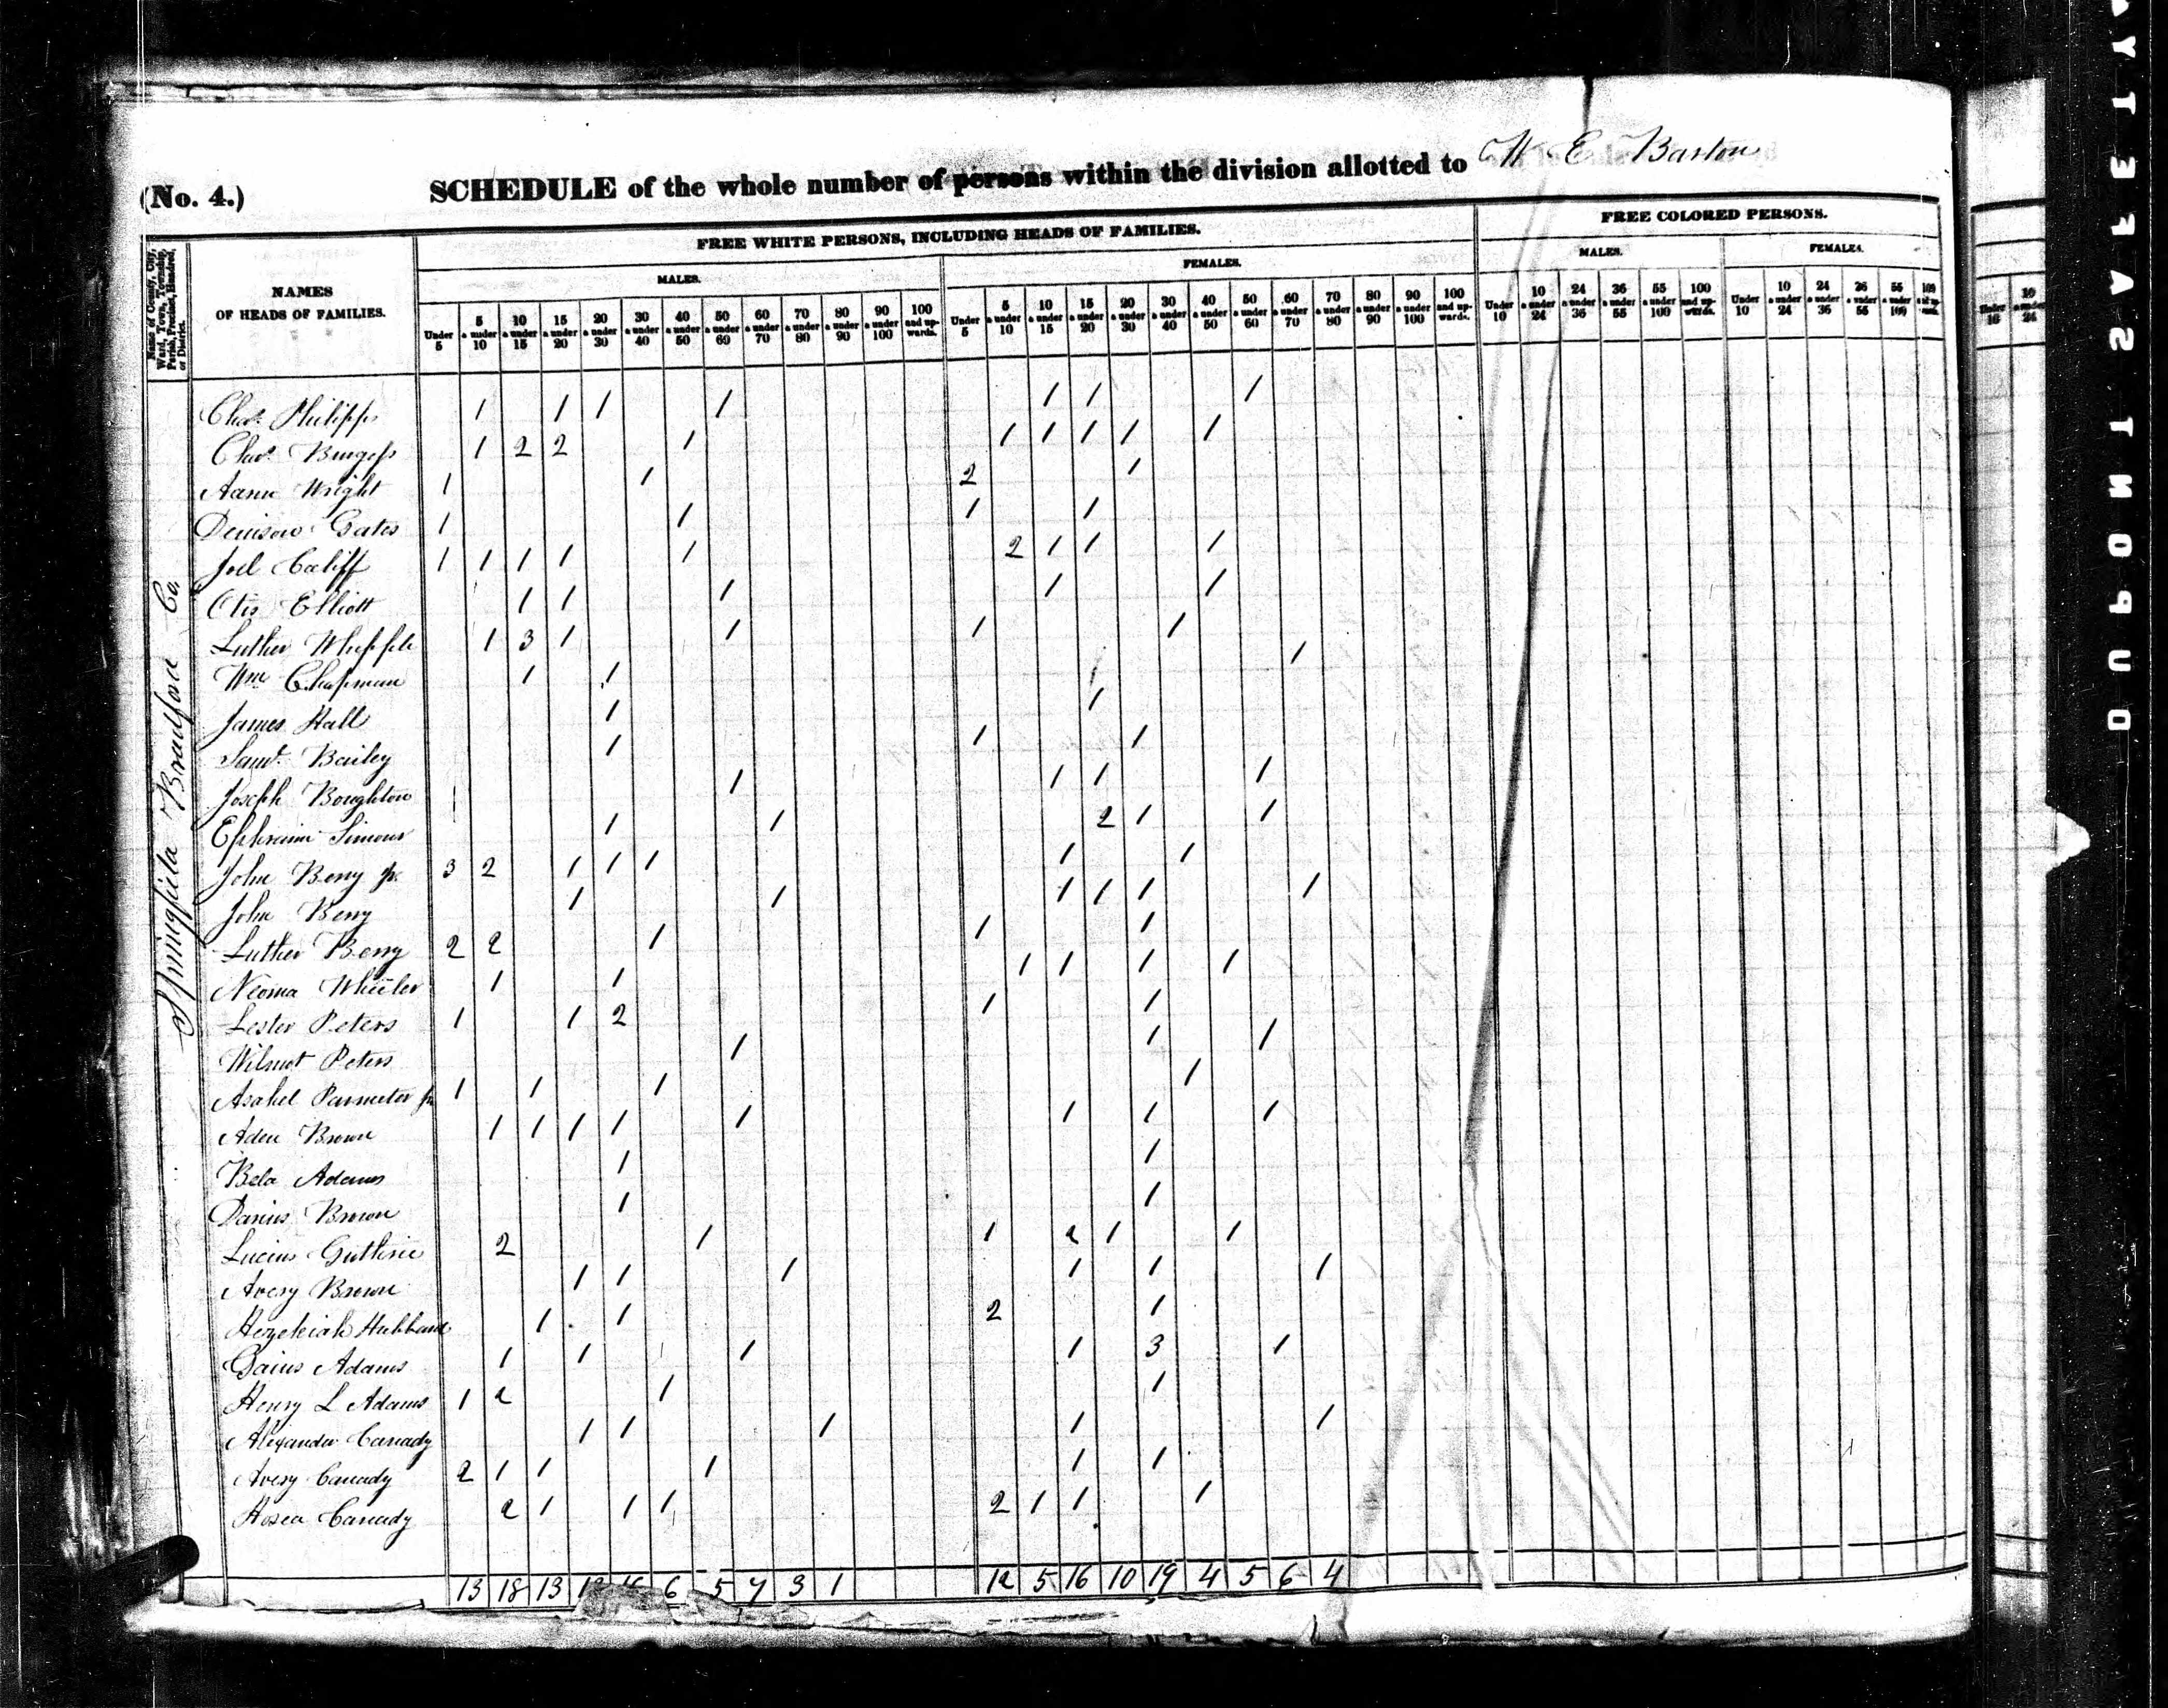 (No. 4.)
SCHEDULE of the whole number of persons within the division allotted to W E Barton
Name of County, City, Ward, Town, Township, Parish, Precinct, Hundred, or District.
NAMES
OF HEADS OF FAMILIES.
FREE WHITE PERSONS, INCLUDING HEADS OF FAMILIES.
FREE COLORED PERSONS.
MALES.
FEMALES.
MALES.
FEMALES.
Under 5 | 5 & under 10 | 10 & under 15 | 15 & under 20 | 20 & under 30 | 30 & under 40 | 40 & under 50 | 50 & under 60 | 60 & under 70 | 70 & under 80 | 80 & under 90 | 90 & under 100 | 100 and upwards.
Under 5 | 5 & under 10 | 10 & under 15 | 15 & under 20 | 20 & under 30 | 30 & under 40 | 40 & under 50 | 50 & under 60 | 60 & under 70 | 70 & under 80 | 80 & under 90 | 90 & under 100 | 100 and upwards.
Under 10 | 10 & under 24 | 24 & under 36 | 36 & under 55 | 55 & under 100 | 100 and upwards.
Under 10 | 10 & under 24 | 24 & under 36 | 36 & under 55 | 55 & under 100 | 100 and upwards.
Springfield Bradford Co.
Chas. Philipps 1 1 1 1 1 1 1
Chas. Burgess 1 2 2 1 1 1 1 1 1
Wright 1 1 2 1
Denison Gates 1 1 1 1
Joel Califf 1 1 1 1 1 2 1 1 1
Otis Elliott 1 1 1 1 1
Luther Whipple 1 3 1 1 1 1
Wm Chapman 1 1 1 1
James Hall 1 1
Saml. Bailey 1 1 1
Joseph Boughton 1 1 1 1 1
Ephraim Simons 1 1 2 1 1
John Berry Jr. 3 2 1 1 1 1 1
John Berry 1 1 1 1 1 1
Luther Berry 2 2 1 1 1
Neoma Wheeler 1 1 1 1 1 1
Lester Peters 1 1 2 1 1
Wilmot Peters 1 1 1
Asahel Parmeter Jr 1 1 1 1
Aden Brown 1 1 1 1 1 1 1 1
Bela Adams 1 1
Darius Brown 1 1
Lucius Guthrie 2 1 1 2 1 1
Avery Brown 1 1 1 1 1 1
Hezekiah Hubbard 1 1 2 1
Gaius Adams 1 1 1 1 3 1
Henry L Adams 1 2 1 1
Alexander Canady 1 1 1 1 1
Avery Canady 2 1 1 1 1 1
Hosea Canady 2 1 1 1 2 1 1 1
13 18 13 6 5 7 3 1 12 5 16 10 19 4 5 6 4
DUPONT SAFETY